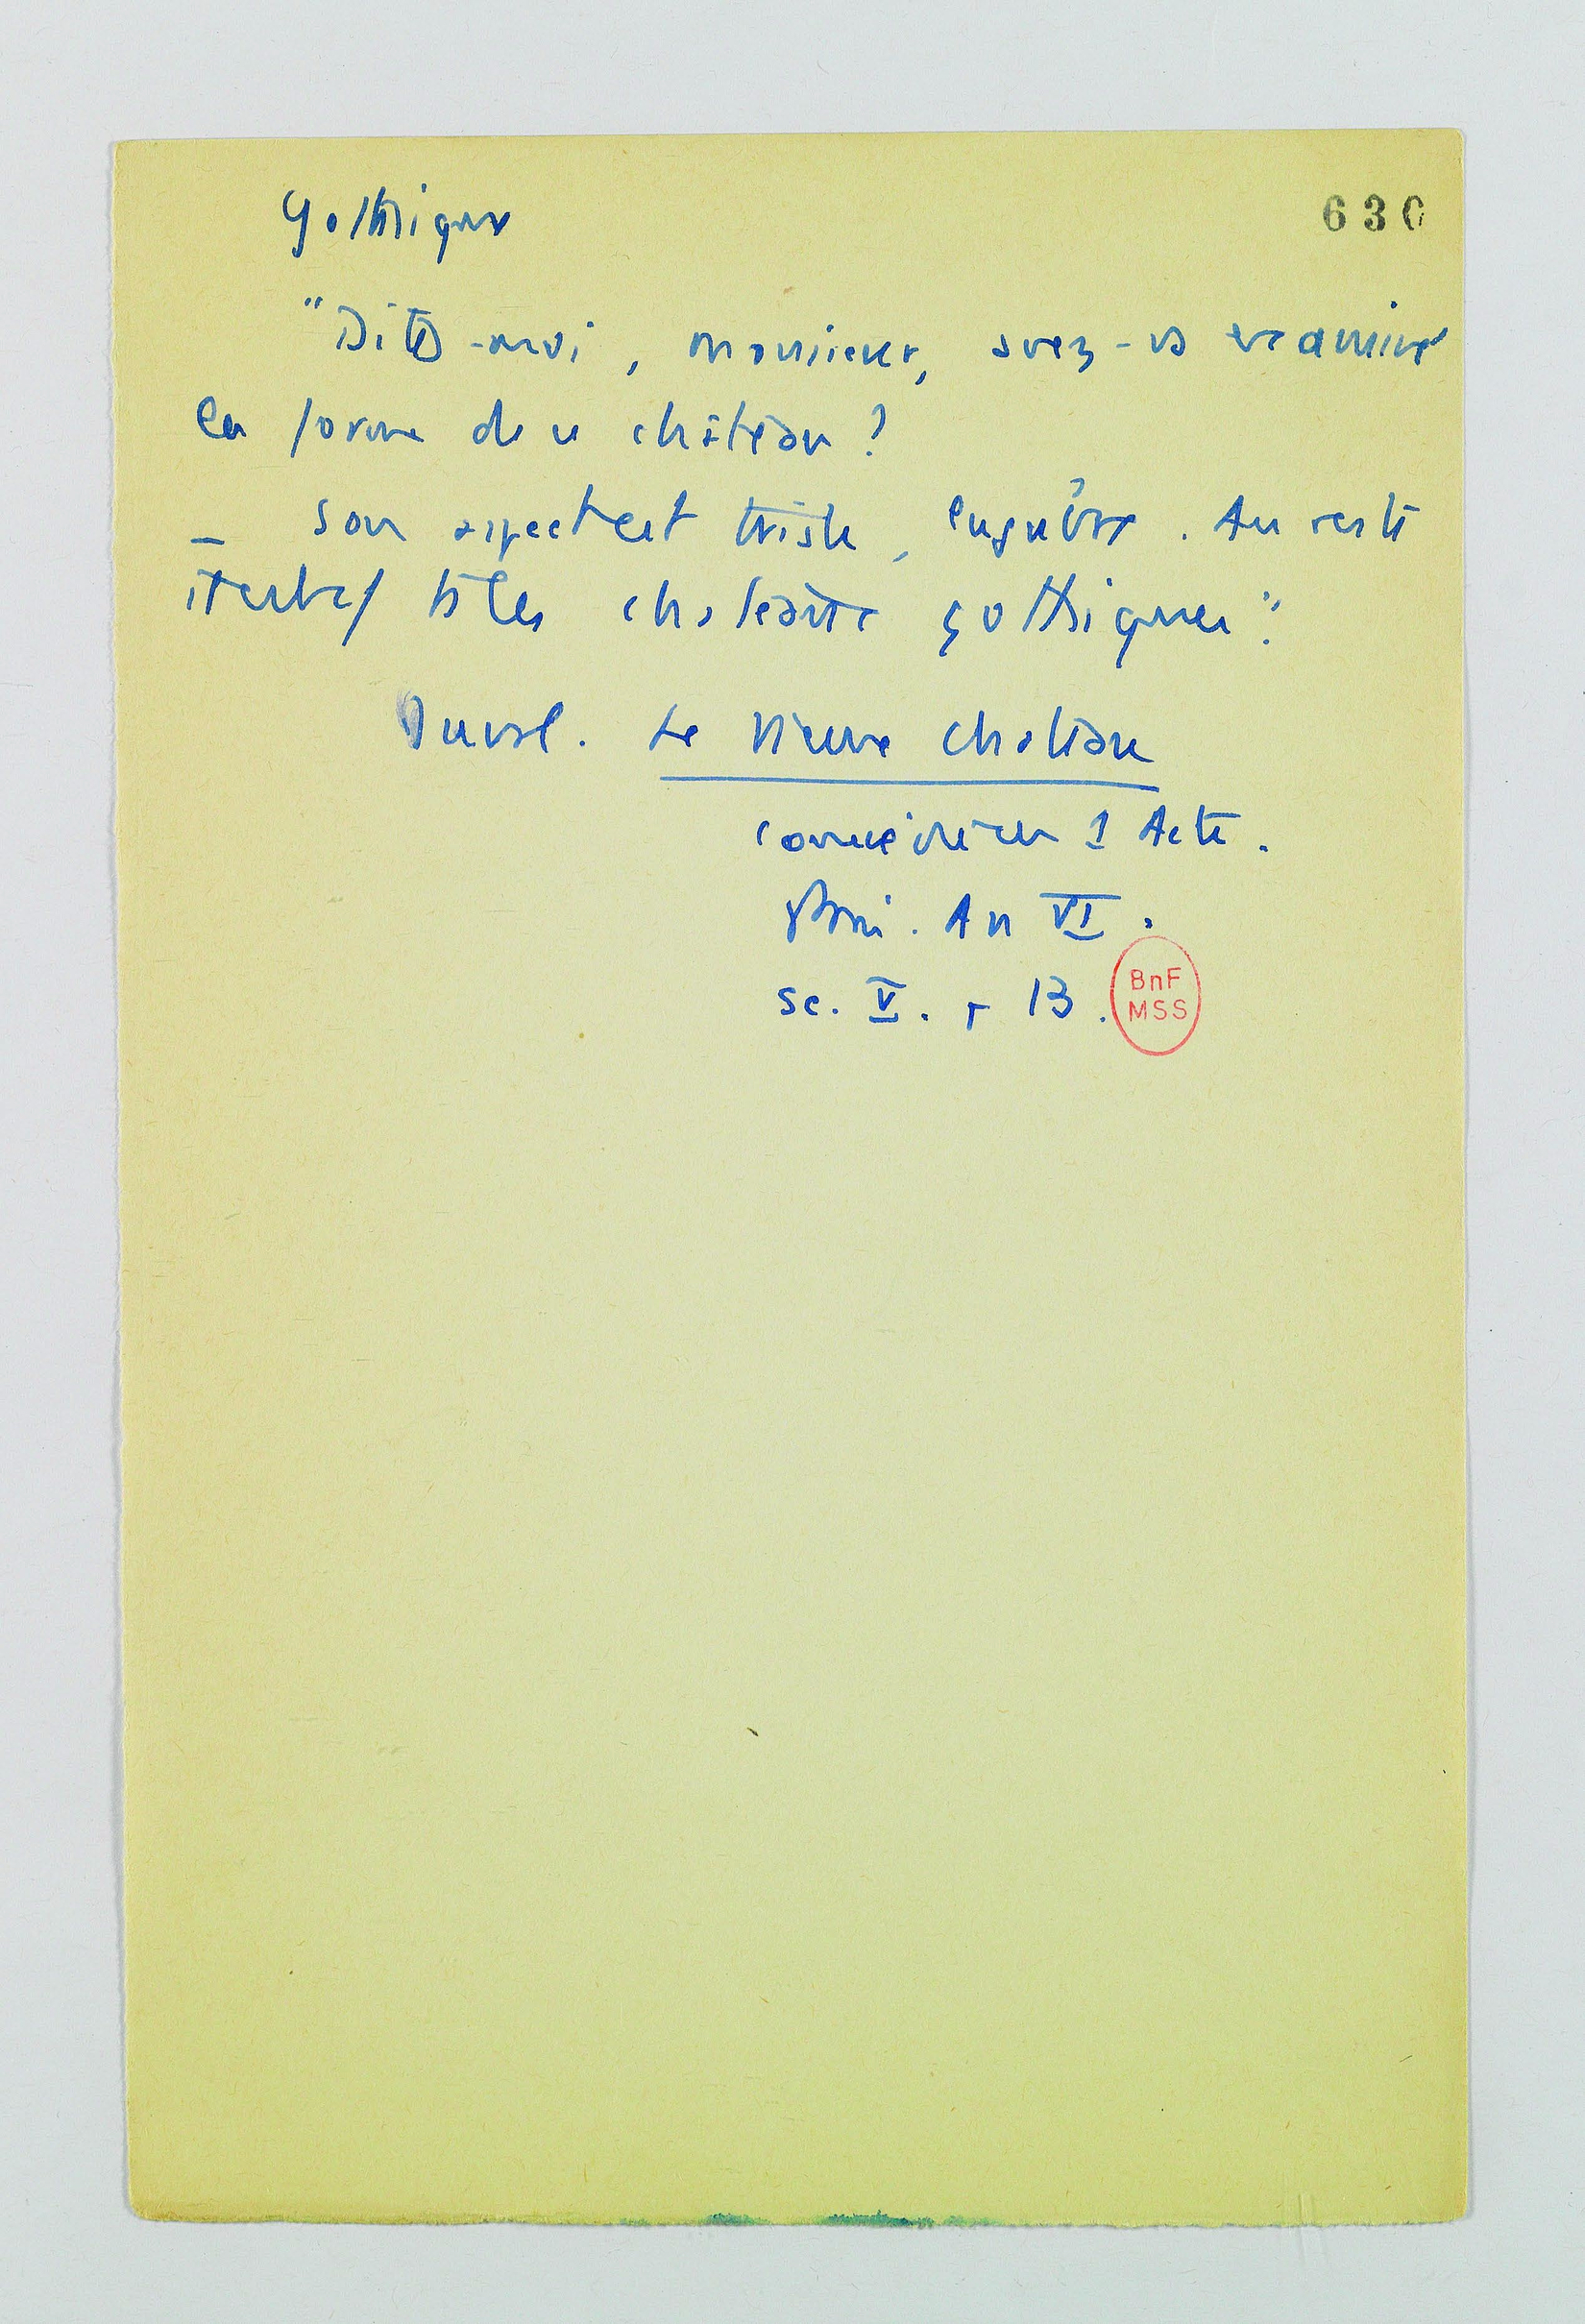 Gothique
630
"Dites-moi, monsieur, avez-vs examiné
la forme de ce château ?
_ Son aspect est triste, lugubre. Au reste
il est bâti comme ts les châteaux gothiques".
Duval. Le Vieux château
comédie en 1 Acte.
Paris. An VI.
sc. V. p 13.
BnF
MSS